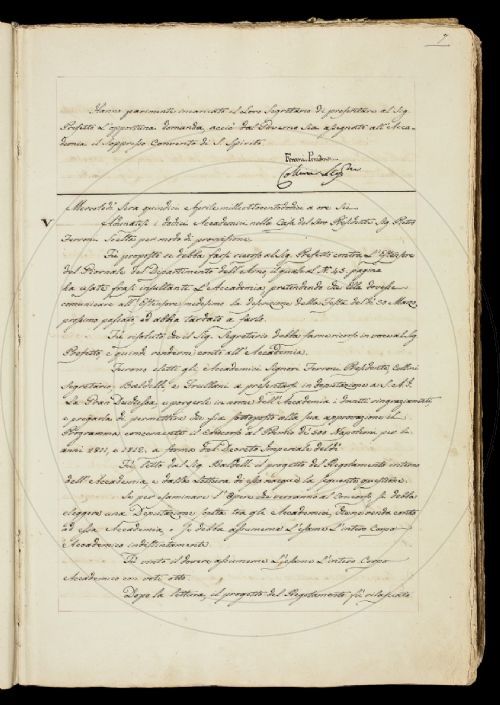 7
Hanno parimente incaricato il Loro Segretario di presentare al Sig.
Prefetto L'opportuna domanda, acciò dal Governo sia assegnato all'Acca-
demia il soppresso Convento di S. Spirito.
Ferroni Presidente
Collini Seg.rio
V
Mercoledì sera quindici Aprile mille ottocentododici a ore sei
Adunatisi i dodici Accademici nella Casa del Sig. Presidente Sig. Pietro
Ferroni scelta per modo di provvisione.
Fù proposto se debba farsi ricorso al Sig. Prefetto contro L'Estensore
del Giornale del Dipartimento dell'Arno, il quale al N.° 43. pagina
ha usate frasi insultanti L'Accademia, pretendendo che Ella dovesse
comunicare all'Estensore medesimo la descrizione della Festa del dì 30 Marzo
prossimo passato, ed abbia tardato a farlo.
Fù risoluto che il Sig. Segretario debba farne ricorso in voce al Sig.
Prefetto, e quindi renderne conti all'Accademia.
Furono eletti gli Accademici Signori Ferroni Presidente, Collini
Segretario, Baldelli, e Frullani a presentarsi in deputazione a S. A. I.
La Gran Duchessa, e porgerle in nome dell'Accademia i dovuti ringraziamenti
e pregarla di permettere che sia sottoposto alla sua approvazione il
Programma concernente il Concorso al Premio di 500 Napoleoni per li
anni 1811, e 1812. a forma del Decreto Imperiale del dì
Fù letto dal Sig. Baldelli il progetto del Regolamento interno
dell'Accademia, e dalla Lettura di esso nacque la seguente questione.
Se per esaminare l'Opere che verranno al Concorso si debba
eleggere una Deputazione scelta tra gli Accademici, che ne renda conto
ad essa Accademia, o se debba assumerne L'esame L'intero Corpo
Accademico indistintamente.
Fù vinto il dovere assumerne L'esame L'intero Corpo
Accademico con voti otto.
Dopo la lettura, il progetto del Regolamento fù rilasciato